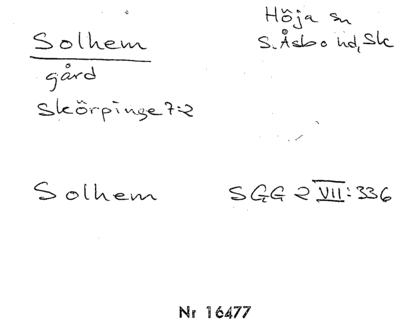 Solhem
gård
Skörpinge 7:2
Höja sn
S. Åsbo hd, Sk
Solhem
SGG 2 VII: 336
Nr 16477